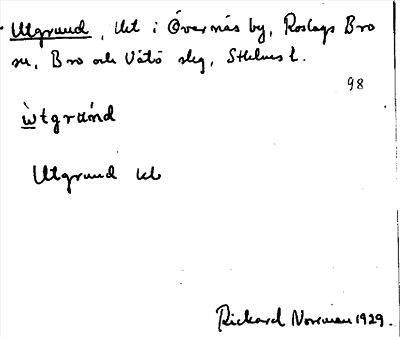 Utgrund, skt i Övernäs by, Roslags Bro
sn, Bro och Vätö skg, Sthlms l.
98
ùtgrúnd
Utgrund
Rickard Norman 1929.